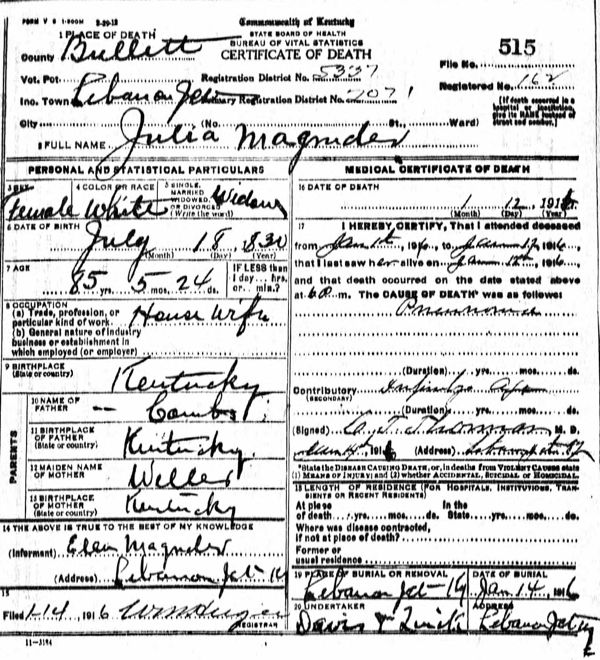 FORM V S 1-500M 2-29-12
Commonwealth of Kentucky
STATE BOARD OF HEALTH
BUREAU OF VITAL STATISTICS
CERTIFICATE OF DEATH
1 PLACE OF DEATH
County Bullitt
Vot. Pct
Inc. Town Lebanon Jct
City (No. St., Ward)
Registration District No. 5337
Primary Registration District No. 7071
515
File No.
Registered No. 162
(If death occurred in a hospital or institution, give its NAME instead of street and number.)
2 FULL NAME Julia Magruder
PERSONAL AND STATISTICAL PARTICULARS
3 SEX Female
4 COLOR OR RACE White
5 SINGLE, MARRIED WIDOWED, OR DIVORCED (Write the word) Widow
6 DATE OF BIRTH July 18, 830
(Month) (Day) (Year)
7 AGE 85 yrs. 5 mos. 24 ds.
IF LESS than 1 day... hrs. or... min.?
8 OCCUPATION
(a) Trade, profession, or particular kind of work. House Wife
(b) General nature of industry business or establishment in which employed (or employer)
9 BIRTHPLACE (State or country) Kentucky
PARENTS
10 NAME OF FATHER -- Combs
11 BIRTHPLACE OF FATHER (State or country) Kentucky
12 MAIDEN NAME OF MOTHER Weller
13 BIRTHPLACE OF MOTHER (State or country) Kentucky
14 THE ABOVE IS TRUE TO THE BEST OF MY KNOWLEDGE
(Informant) Ellen Magruder
(Address) Lebanon Jct Ky
15
Filed 1-14, 1916
REGISTRAR
11-3184
MEDICAL CERTIFICATE OF DEATH
16 DATE OF DEATH
1 12, 1916
(Month) (Day) (Year)
17 I HEREBY CERTIFY, That I attended deceased
from Jan 1st, 1916, to Jan 12, 1916
that I last saw her alive on Jan 12th, 1916
and that death occurred on the date stated above
at 6 P. m. The CAUSE OF DEATH* was as follows:
Pneumonia
(Duration) yrs. mos. ds.
Contributory (SECONDARY)
(Duration) yrs. mos. ds.
(Signed) Thomas M. D.
1916 (Address)
*State the DISEASE CAUSING DEATH, or, in deaths from VIOLENT CAUSES state (1) MEANS OF INJURY; and (2) whether ACCIDENTAL, SUICIDAL or HOMICIDAL.
18 LENGTH OF RESIDENCE (FOR HOSPITALS, INSTITUTIONS, TRANSIENTS OR RECENT RESIDENTS)
At place of death yrs. mos. ds. In the State yrs. mos. ds.
Where was disease contracted, if not at place of death?
Former or usual residence
19 PLACE OF BURIAL OR REMOVAL Lebanon Jct Ky
DATE OF BURIAL Jan 14, 1916
20 UNDERTAKER Davis & Quick
ADDRESS Lebanon Jct Ky